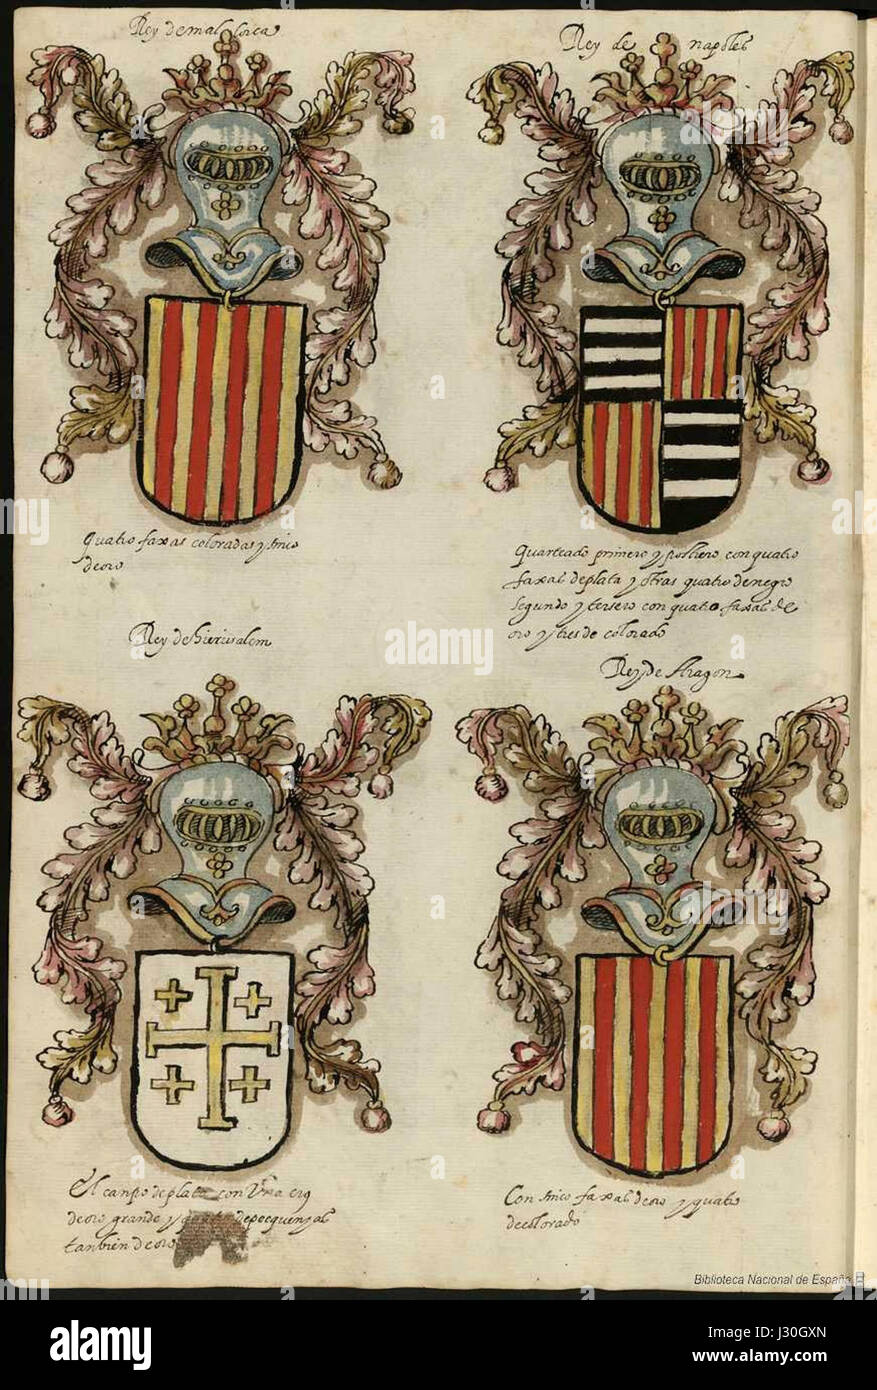 Rey de mallorca
Rey de napoles
quatro faxas coloradas y sinco
de oro
quarteado primero y postrero con quatro
faxas de plata y otras quatro de negro
segundo y tersero con quatro faxas de
oro y tres de colorado
Rey de hierusalem
Rey de Aragon
El canpo de plata con Vna cruz
de oro grande y quatro de pequenyas
tanbien de oro
Con sinco faxas de oro y quatro
de colorado
Biblioteca Nacional de España
alamy
alamy stock photo
J30GXN
www.alamy.com